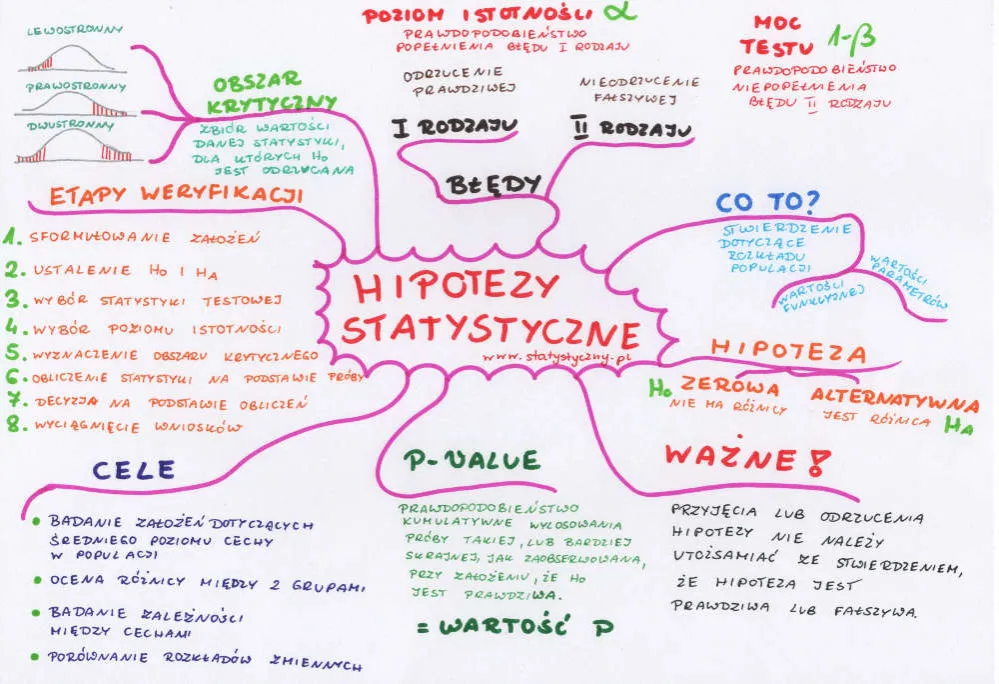 LEWOSTRONNY
PRAWOSTRONNY
DWUSTRONNY
OBSZAR
KRYTYCZNY
ZBIÓR WARTOŚCI
DANEJ STATYSTYKI,
DLA KTÓRYCH H0
JEST ODRZUCANA
POZIOM ISTOTNOŚCI α
PRAWDOPODOBIEŃSTWO
POPEŁNIENIA BŁĘDU I RODZAJU
ODRZUCENIE
PRAWDZIWEJ
I RODZAJU
NIEODRZUCENIE
FAŁSZYWEJ
II RODZAJU
BŁĘDY
MOC
TESTU 1-β
PRAWDOPODOBIEŃSTWO
NIEPOPEŁNIENIA
BŁĘDU II RODZAJU
ETAPY WERYFIKACJI
1. SFORMUŁOWANIE ZAŁOŻEŃ
2. USTALENIE H0 I HA
3. WYBÓR STATYSTYKI TESTOWEJ
4. WYBÓR POZIOMU ISTOTNOŚCI
5. WYZNACZENIE OBSZARU KRYTYCZNEGO
6. OBLICZENIE STATYSTYKI NA PODSTAWIE PRÓBY
7. DECYZJA NA PODSTAWIE OBLICZEŃ
8. WYCIĄGNIĘCIE WNIOSKÓW
HIPOTEZY
STATYSTYCZNE
www.statystyczny.pl
CO TO?
STWIERDZENIE
DOTYCZĄCE
ROZKŁADU
POPULACJI
WARTOŚCI
FUNKCYJNEJ
WARTOŚCI
PARAMETRÓW
HIPOTEZA
H0 ZEROWA
NIE MA RÓŻNICY
ALTERNATYWNA
JEST RÓŻNICA HA
CELE
• BADANIE ZAŁOŻEŃ DOTYCZĄCYCH
ŚREDNIEGO POZIOMU CECHY
W POPULACJI
• OCENA RÓŻNICY MIĘDZY 2 GRUPAMI
• BADANIE ZALEŻNOŚCI
MIĘDZY CECHAMI
• PORÓWNANIE ROZKŁADÓW ZMIENNYCH
P-VALUE
PRAWDOPODOBIEŃSTWO
KUMULATYWNE WYLOSOWANIA
PRÓBY TAKIEJ, LUB BARDZIEJ
SKRAJNEJ, JAK ZAOBSERWOWANA,
PRZY ZAŁOŻENIU, ŻE H0
JEST PRAWDZIWA.
= WARTOŚĆ P
WAŻNE!
PRZYJĘCIA LUB ODRZUCENIA
HIPOTEZY NIE NALEŻY
UTOŻSAMIAĆ ZE STWIERDZENIEM,
ŻE HIPOTEZA JEST
PRAWDZIWA LUB FAŁSZYWA.